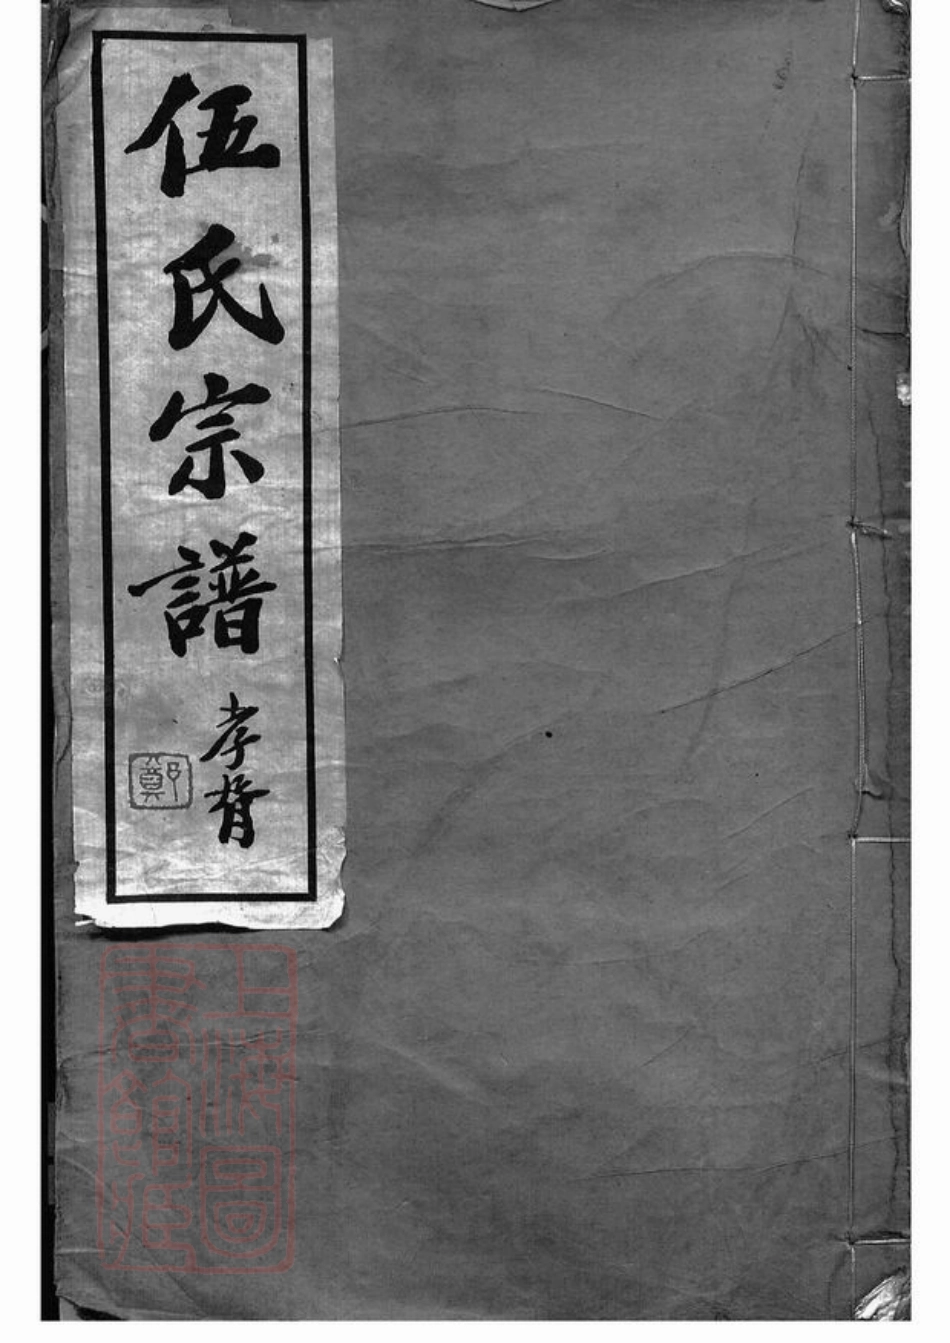 伍氏宗譜
孝胥
鄭
上海圖
書館藏